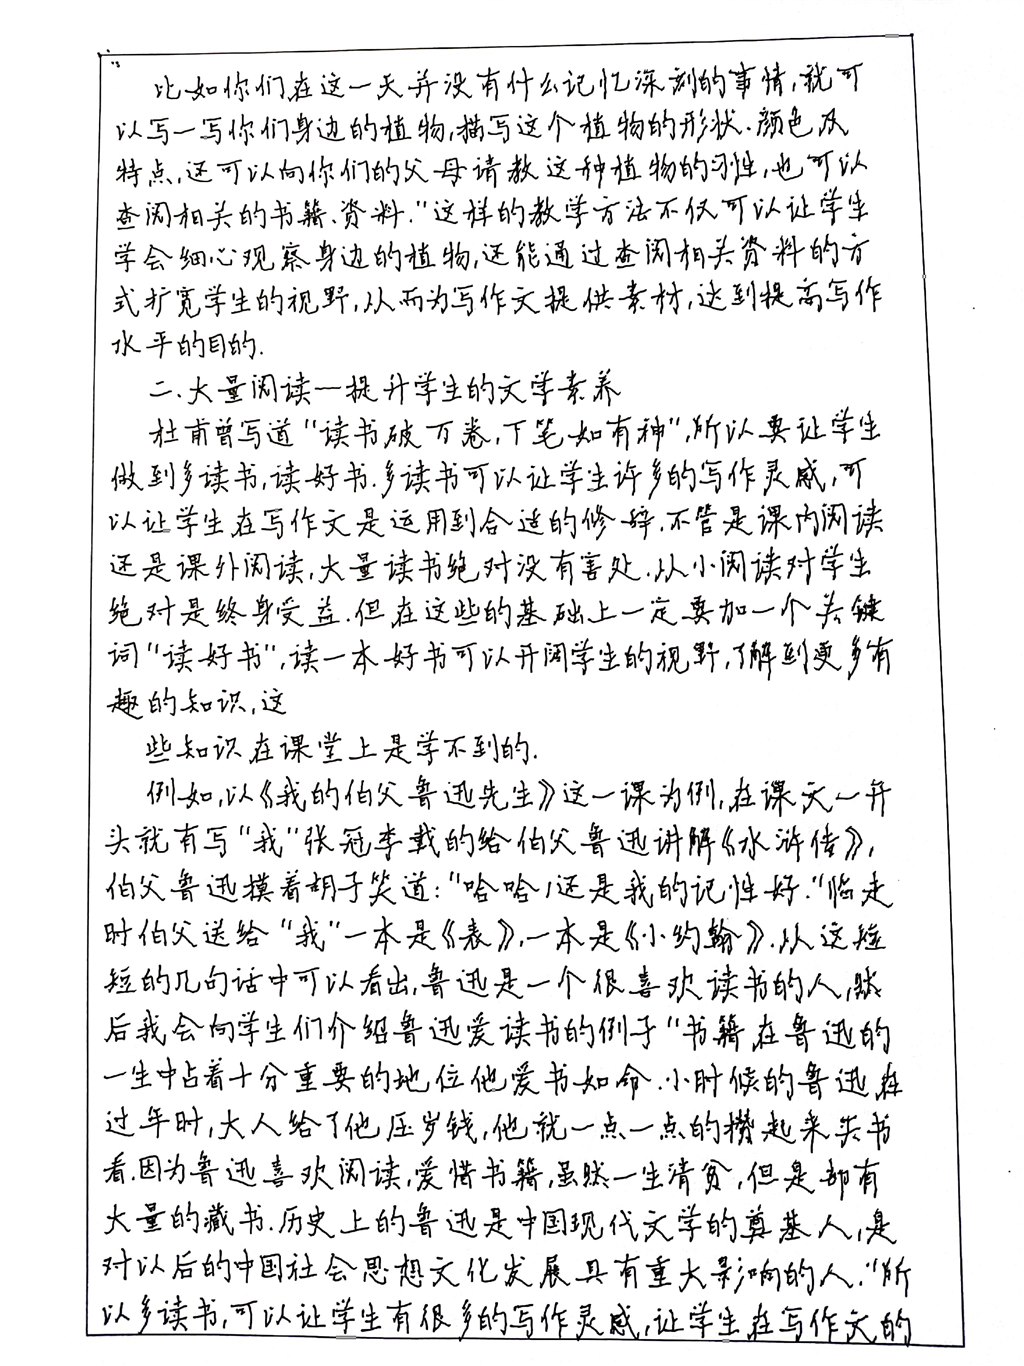 比如你们在这一天并没有什么记忆深刻的事情,就可
以写一写你们身边的植物,描写这个植物的形状.颜色及
特点,还可以向你们的父母请教这种植物的习性,也可以
查阅相关的书籍、资料."这样的教学方法不仅可以让学生
学会细心观察身边的植物,还能通过查阅相关资料的方
式扩宽学生的视野,从而为写作文提供素材,达到提高写作
水平的目的.
二.大量阅读一提升学生的文学素养
杜甫曾写道"读书破万卷,下笔如有神",所以要让学生
做到多读书,读好书.多读书可以让学生许多的写作灵感,可
以让学生在写作文是运用到合适的修辞.不管是课内阅读
还是课外阅读,大量读书绝对没有害处.从小阅读对学生
绝对是终身受益.但在这些的基础上一定要加一个关键
词"读好书",读一本好书可以开阔学生的视野,了解到更多有
趣的知识,这
些知识在课堂上是学不到的.
例如,以《我的伯父鲁迅先生》这一课为例,在课文一开
头就有写"我"张冠李戴的给伯父鲁迅讲解《水浒传》,
伯父鲁迅摸着胡子笑道:"哈哈!还是我的记性好."临走
时伯父送给"我"一本是《表》,一本是《小约翰》.从这短
短的几句话中可以看出,鲁迅是一个很喜欢读书的人,然
后我会向学生们介绍鲁迅爱读书的例子"书籍在鲁迅的
一生中占着十分重要的地位他爱书如命.小时候的鲁迅在
过年时,大人给了他压岁钱,他就一点一点的攒起来买书
看.因为鲁迅喜欢阅读,爱惜书籍,虽然一生清贫,但是却有
大量的藏书.历史上的鲁迅是中国现代文学的奠基人,是
对以后的中国社会思想文化发展具有重大影响的人."所
以多读书,可以让学生有很多的写作灵感,让学生在写作文的